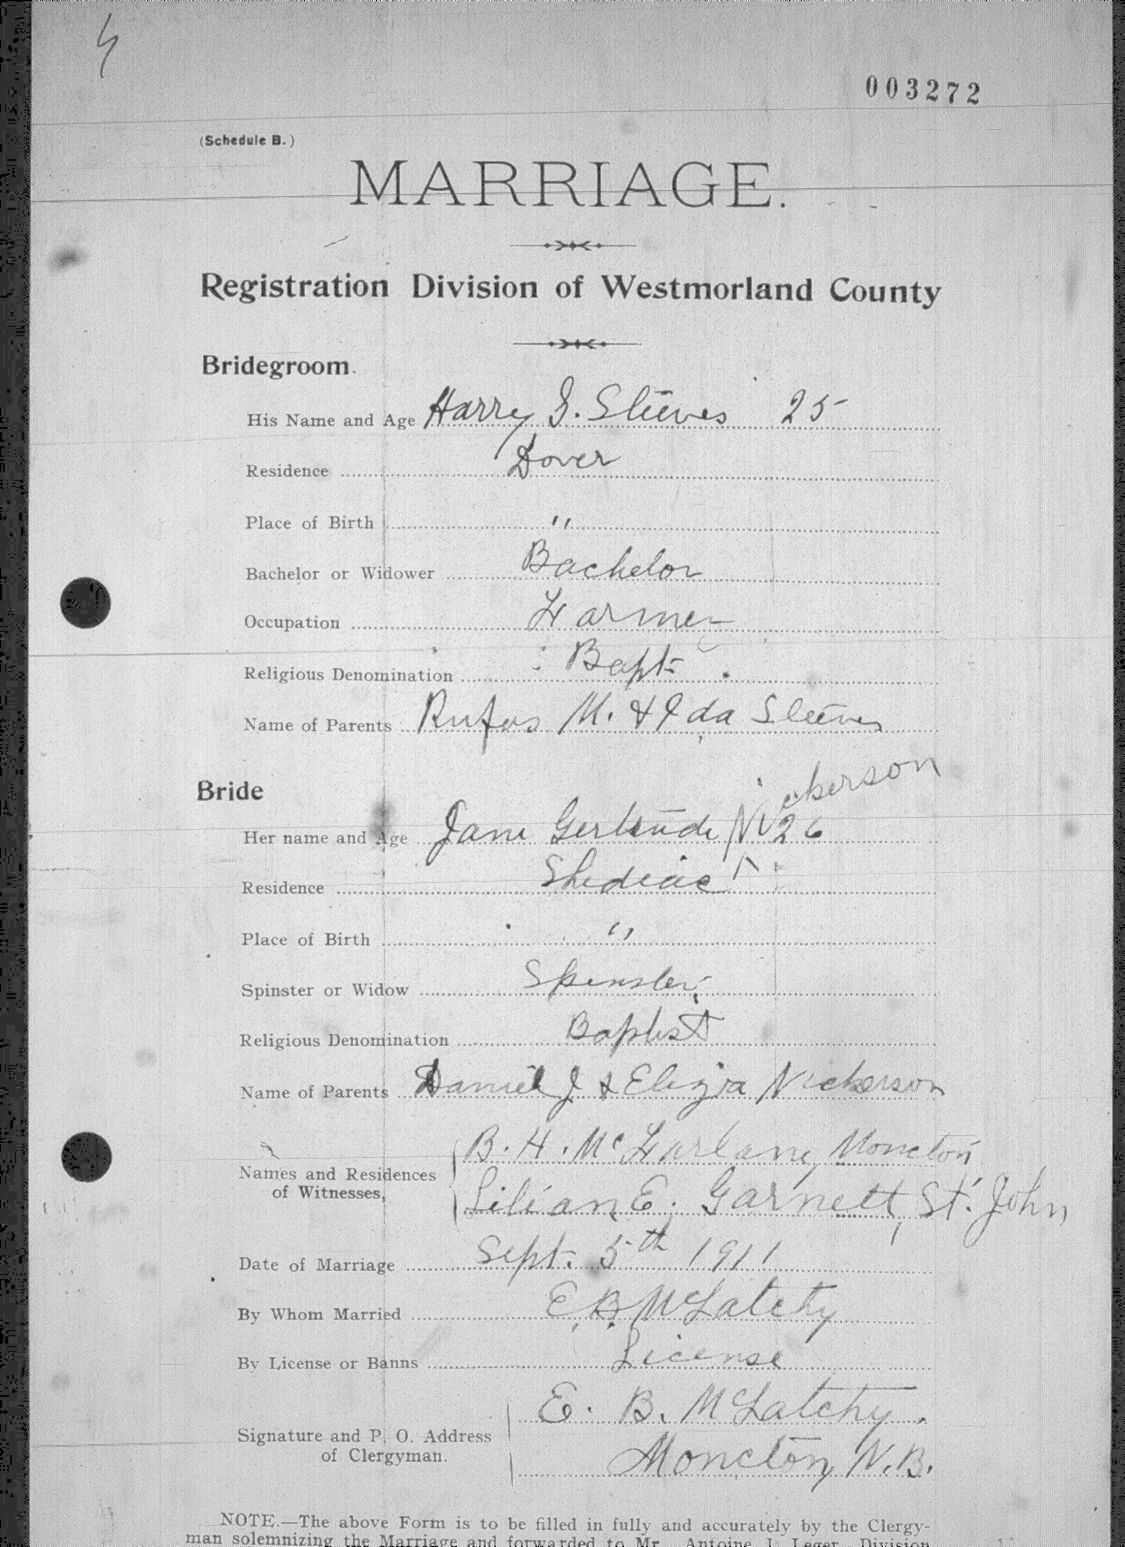 003272
(Schedule B.)
MARRIAGE.
Registration Division of Westmorland County
Bridegroom.
His Name and Age Harry I. Steeves 25
Residence Dover
Place of Birth "
Bachelor or Widower Bachelor
Occupation Farmer
Religious Denomination Bapt.
Name of Parents Rufus M. & Ida Steeves
Bride
Her name and Age Jane Gertrude Nickerson 26
Residence Shediac
Place of Birth "
Spinster or Widow Spinster
Religious Denomination Baptist
Name of Parents Daniel J & Eliza Nickerson
Names and Residences of Witnesses, B. H. McFarlane, Moncton
Lilian E. Garnett, St. John
Date of Marriage Sept. 5th 1911
By Whom Married E. B. McLatchy
By License or Banns License
Signature and P. O. Address of Clergyman. E. B. McLatchy.
Moncton, N.B.
NOTE.—The above Form is to be filled in fully and accurately by the Clergy-
man solemnizing the Marriage and forwarded to Mr. Antoine J. Leger, Division